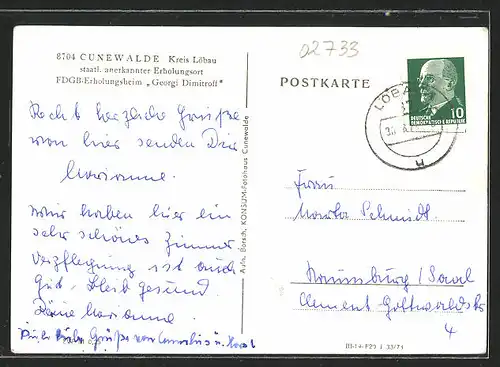 02733
8704 CUNEWALDE Kreis Löbau
staatl. anerkannter Erholungsort
FDGB-Erholungsheim „Georgi Dimitroff"
POSTKARTE
LÖBA
DEUTSCHE
DEMOKRATISCHE REPUBLIK
10
Recht herzliche Grüße
von hier senden Dir
Marianne.
Wir haben hier ein
sehr schönes Zimmer
Verpflegung ist auch
gut. Bleib gesund
Deine Marianne.
Grüße von Cornelius u. Horst
Aufn. Borsch, KONSUM-Fotohaus Cunewalde
Frau
Marta Schmidt.
Naumburg/Saal
Clement Gottwaldstr
4